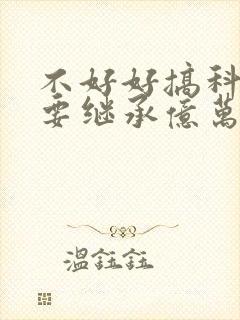 不好好搞科
要继承億萬
溫鈺鈺